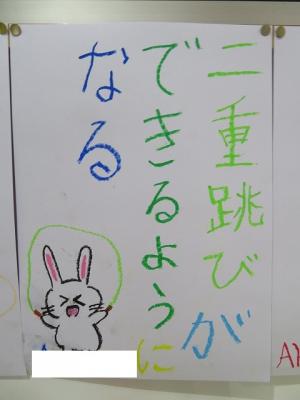 二重跳びが
できるように
なる